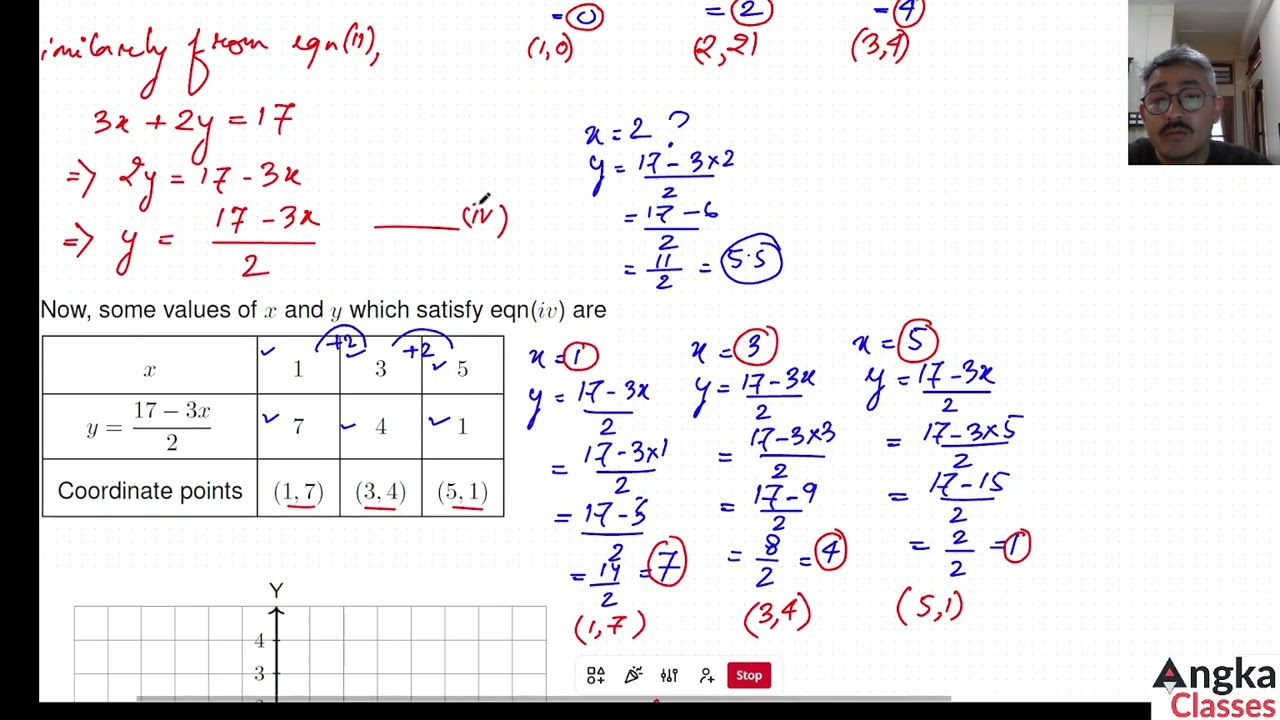 imilarly from eqn(ii),
3x + 2y = 17
=> 2y = 17 - 3x
=> y = (17 - 3x)/2 ——(iv)
= 0
(1,0)
= 2
(2,2)
= 4
(3,4)
x = 2 ?
y = (17 - 3×2)/2
= (17 - 6)/2
= 11/2 = 5.5
Now, some values of x and y which satisfy eqn(iv) are
+2 +2
x 1 3 5
y = (17 − 3x)/2 7 4 1
Coordinate points (1, 7) (3, 4) (5, 1)
x = 1
y = (17 - 3x)/2
= (17 - 3×1)/2
= (17 - 3)/2
= 14/2 = 7
(1,7)
x = 3
y = (17 - 3x)/2
= (17 - 3×3)/2
= (17 - 9)/2
= 8/2 = 4
(3,4)
x = 5
y = (17 - 3x)/2
= (17 - 3×5)/2
= (17 - 15)/2
= 2/2 = 1
(5,1)
Y
4
3
Stop
Angka
Classes